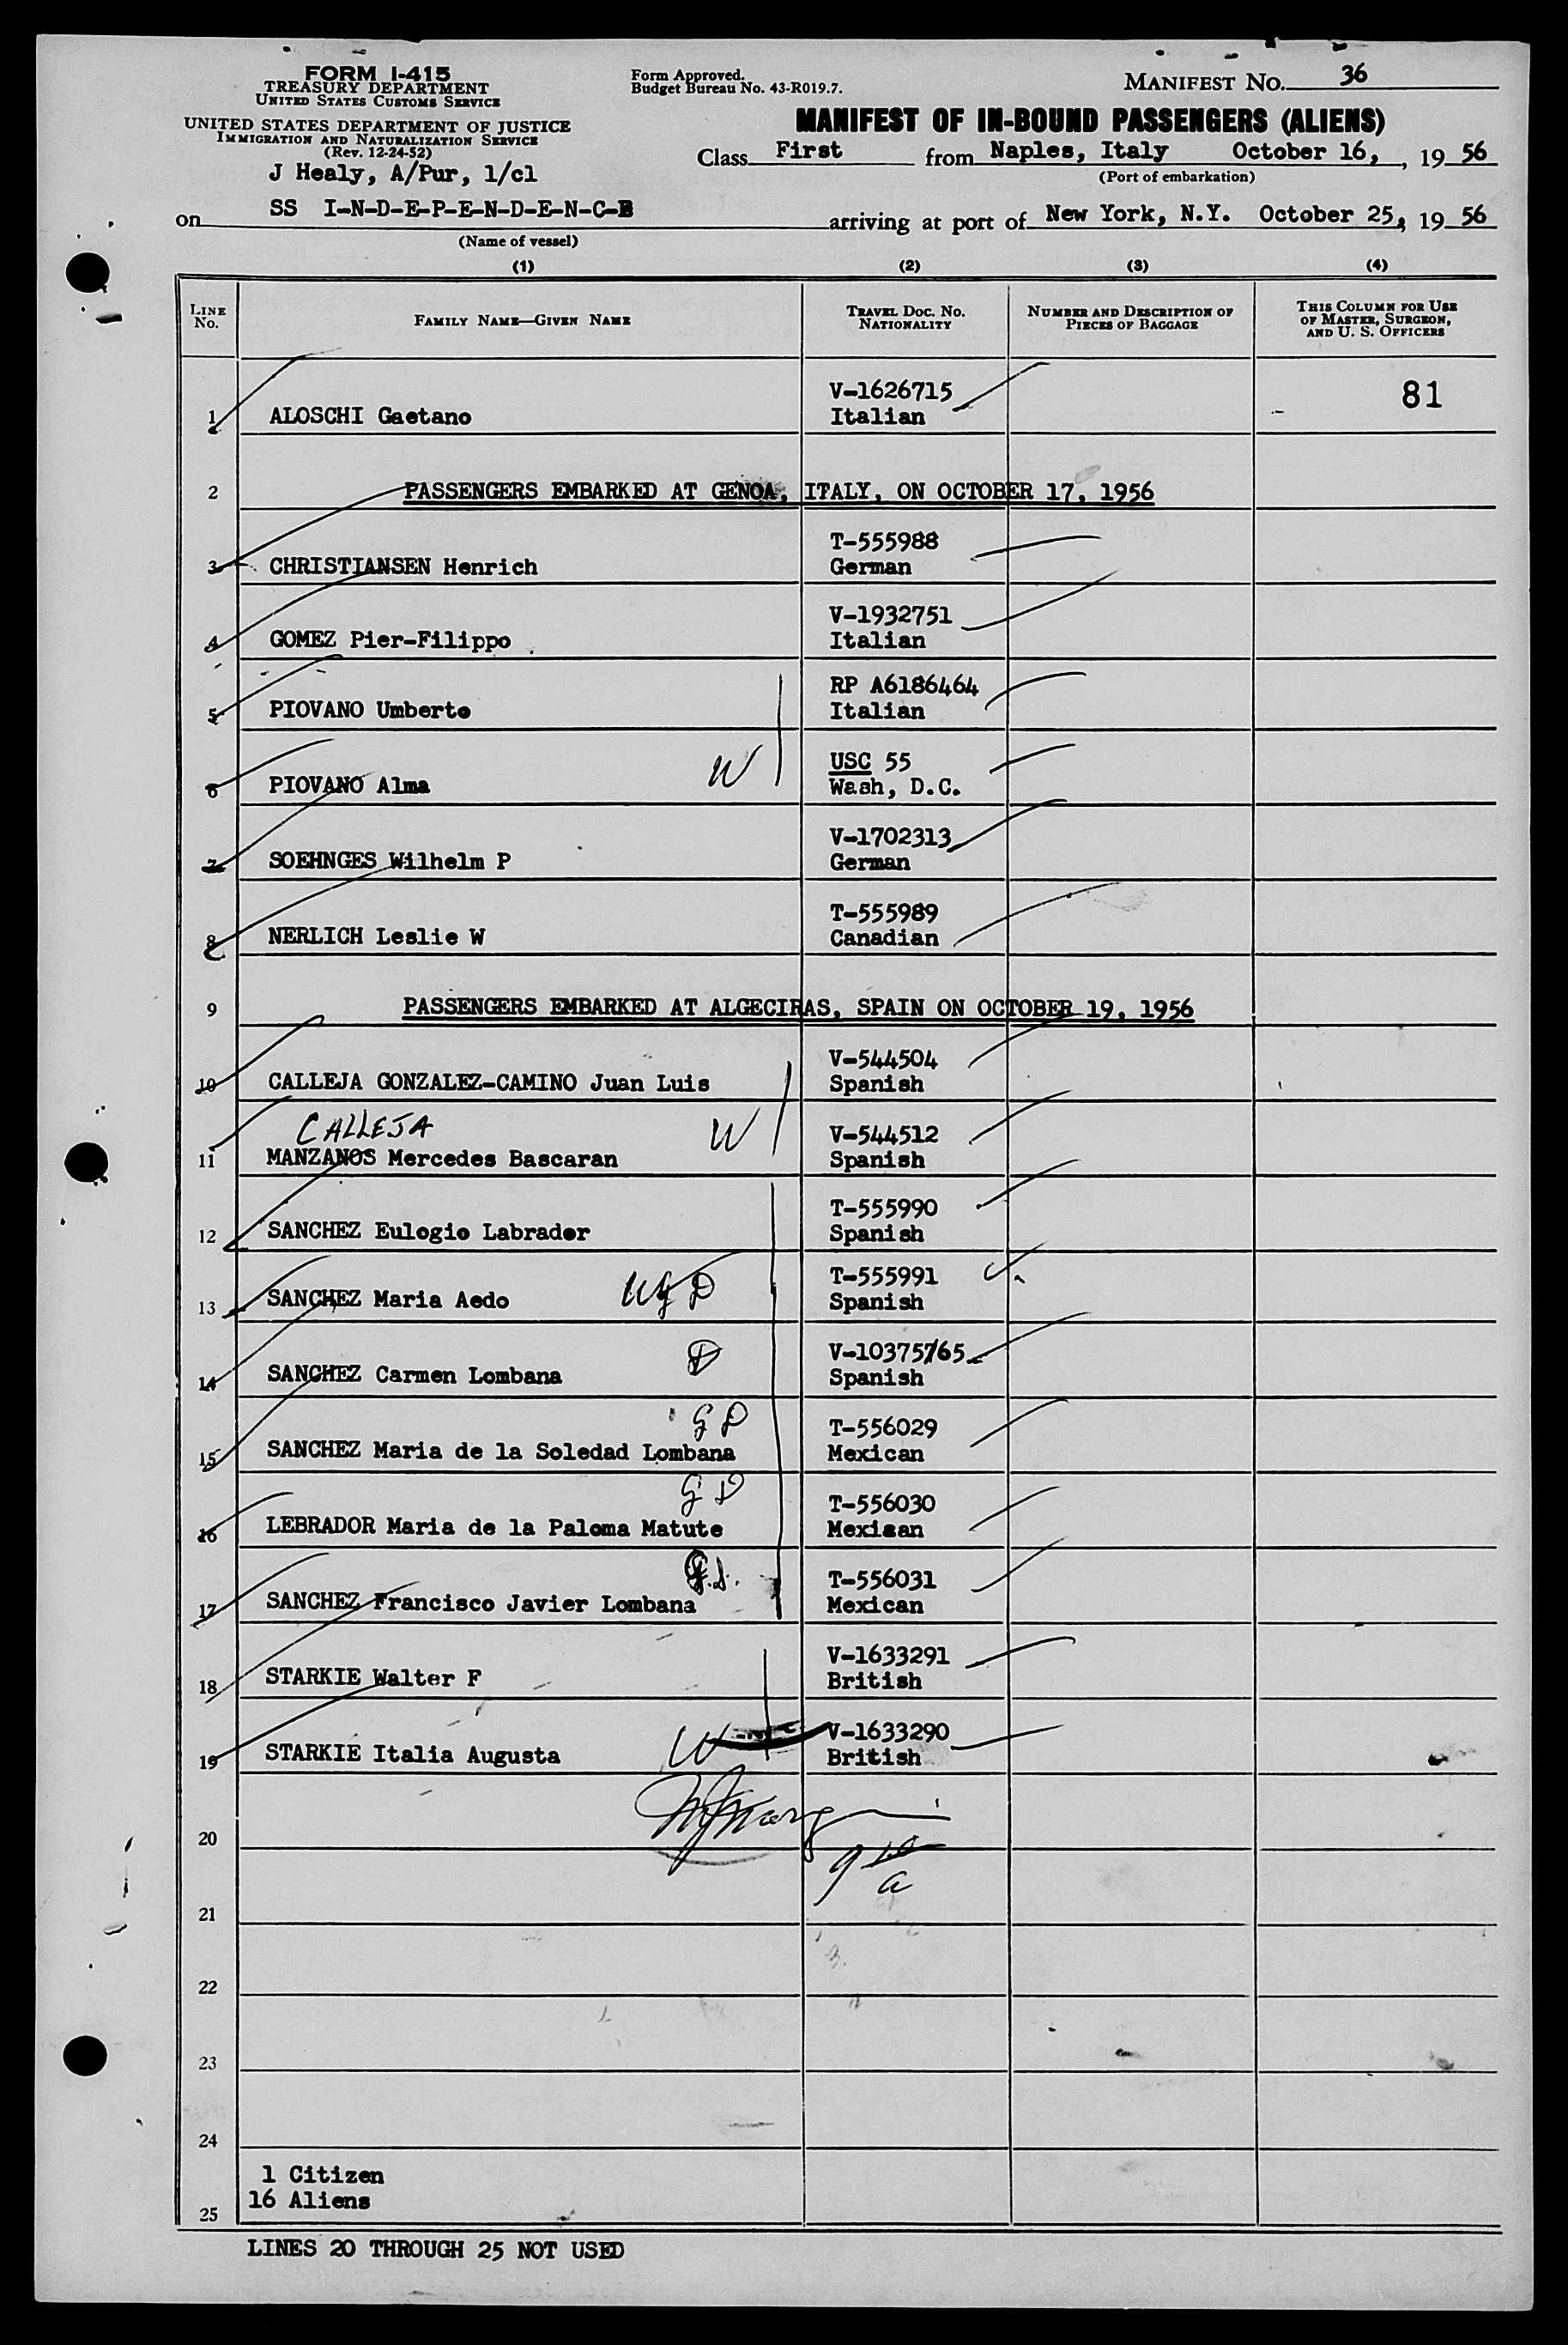 FORM I-415
TREASURY DEPARTMENT
UNITED STATES CUSTOMS SERVICE
UNITED STATES DEPARTMENT OF JUSTICE
IMMIGRATION AND NATURALIZATION SERVICE
(Rev. 12-24-52)
J Healy, A/Pur, 1/cl
Form Approved.
Budget Bureau No. 43-R019.7.
MANIFEST NO. 36
MANIFEST OF IN-BOUND PASSENGERS (ALIENS)
Class First from Naples, Italy October 16, , 19 56
(Port of embarkation)
on SS I-N-D-E-P-E-N-D-E-N-C-E arriving at port of New York, N.Y. October 25, 19 56
(Name of vessel)
(1) (2) (3) (4)
LINE NO. FAMILY NAME—GIVEN NAME TRAVEL DOC. NO. NATIONALITY NUMBER AND DESCRIPTION OF PIECES OF BAGGAGE THIS COLUMN FOR USE OF MASTER, SURGEON, AND U. S. OFFICERS
V-1626715 81
1 ALOSCHI Gaetano Italian
2 PASSENGERS EMBARKED AT GENOA, ITALY, ON OCTOBER 17, 1956
T-555988
3 CHRISTIANSEN Henrich German
V-1932751
4 GOMEZ Pier-Filippo Italian
RP A6186464
5 PIOVANO Umberto Italian
W USC 55
6 PIOVANO Alma Wash, D.C.
V-1702313
7 SOEHNGES Wilhelm P German
T-555989
8 NERLICH Leslie W Canadian
9 PASSENGERS EMBARKED AT ALGECIRAS, SPAIN ON OCTOBER 19, 1956
V-544504
10 CALLEJA GONZALEZ-CAMINO Juan Luis Spanish
CALLEJA W V-544512
11 MANZANOS Mercedes Bascaran Spanish
T-555990
12 SANCHEZ Eulogio Labrador Spanish
T-555991
13 SANCHEZ Maria Aedo Spanish
D V-10375/65
14 SANCHEZ Carmen Lombana Spanish
G D T-556029
15 SANCHEZ Maria de la Soledad Lombana Mexican
G D T-556030
16 LEBRADOR Maria de la Paloma Matute Mexican
T-556031
17 SANCHEZ Francisco Javier Lombana Mexican
V-1633291
18 STARKIE Walter F British
W V-1633290
19 STARKIE Italia Augusta British
20
21
22
23
24
1 Citizen
16 Aliens
25
LINES 20 THROUGH 25 NOT USED